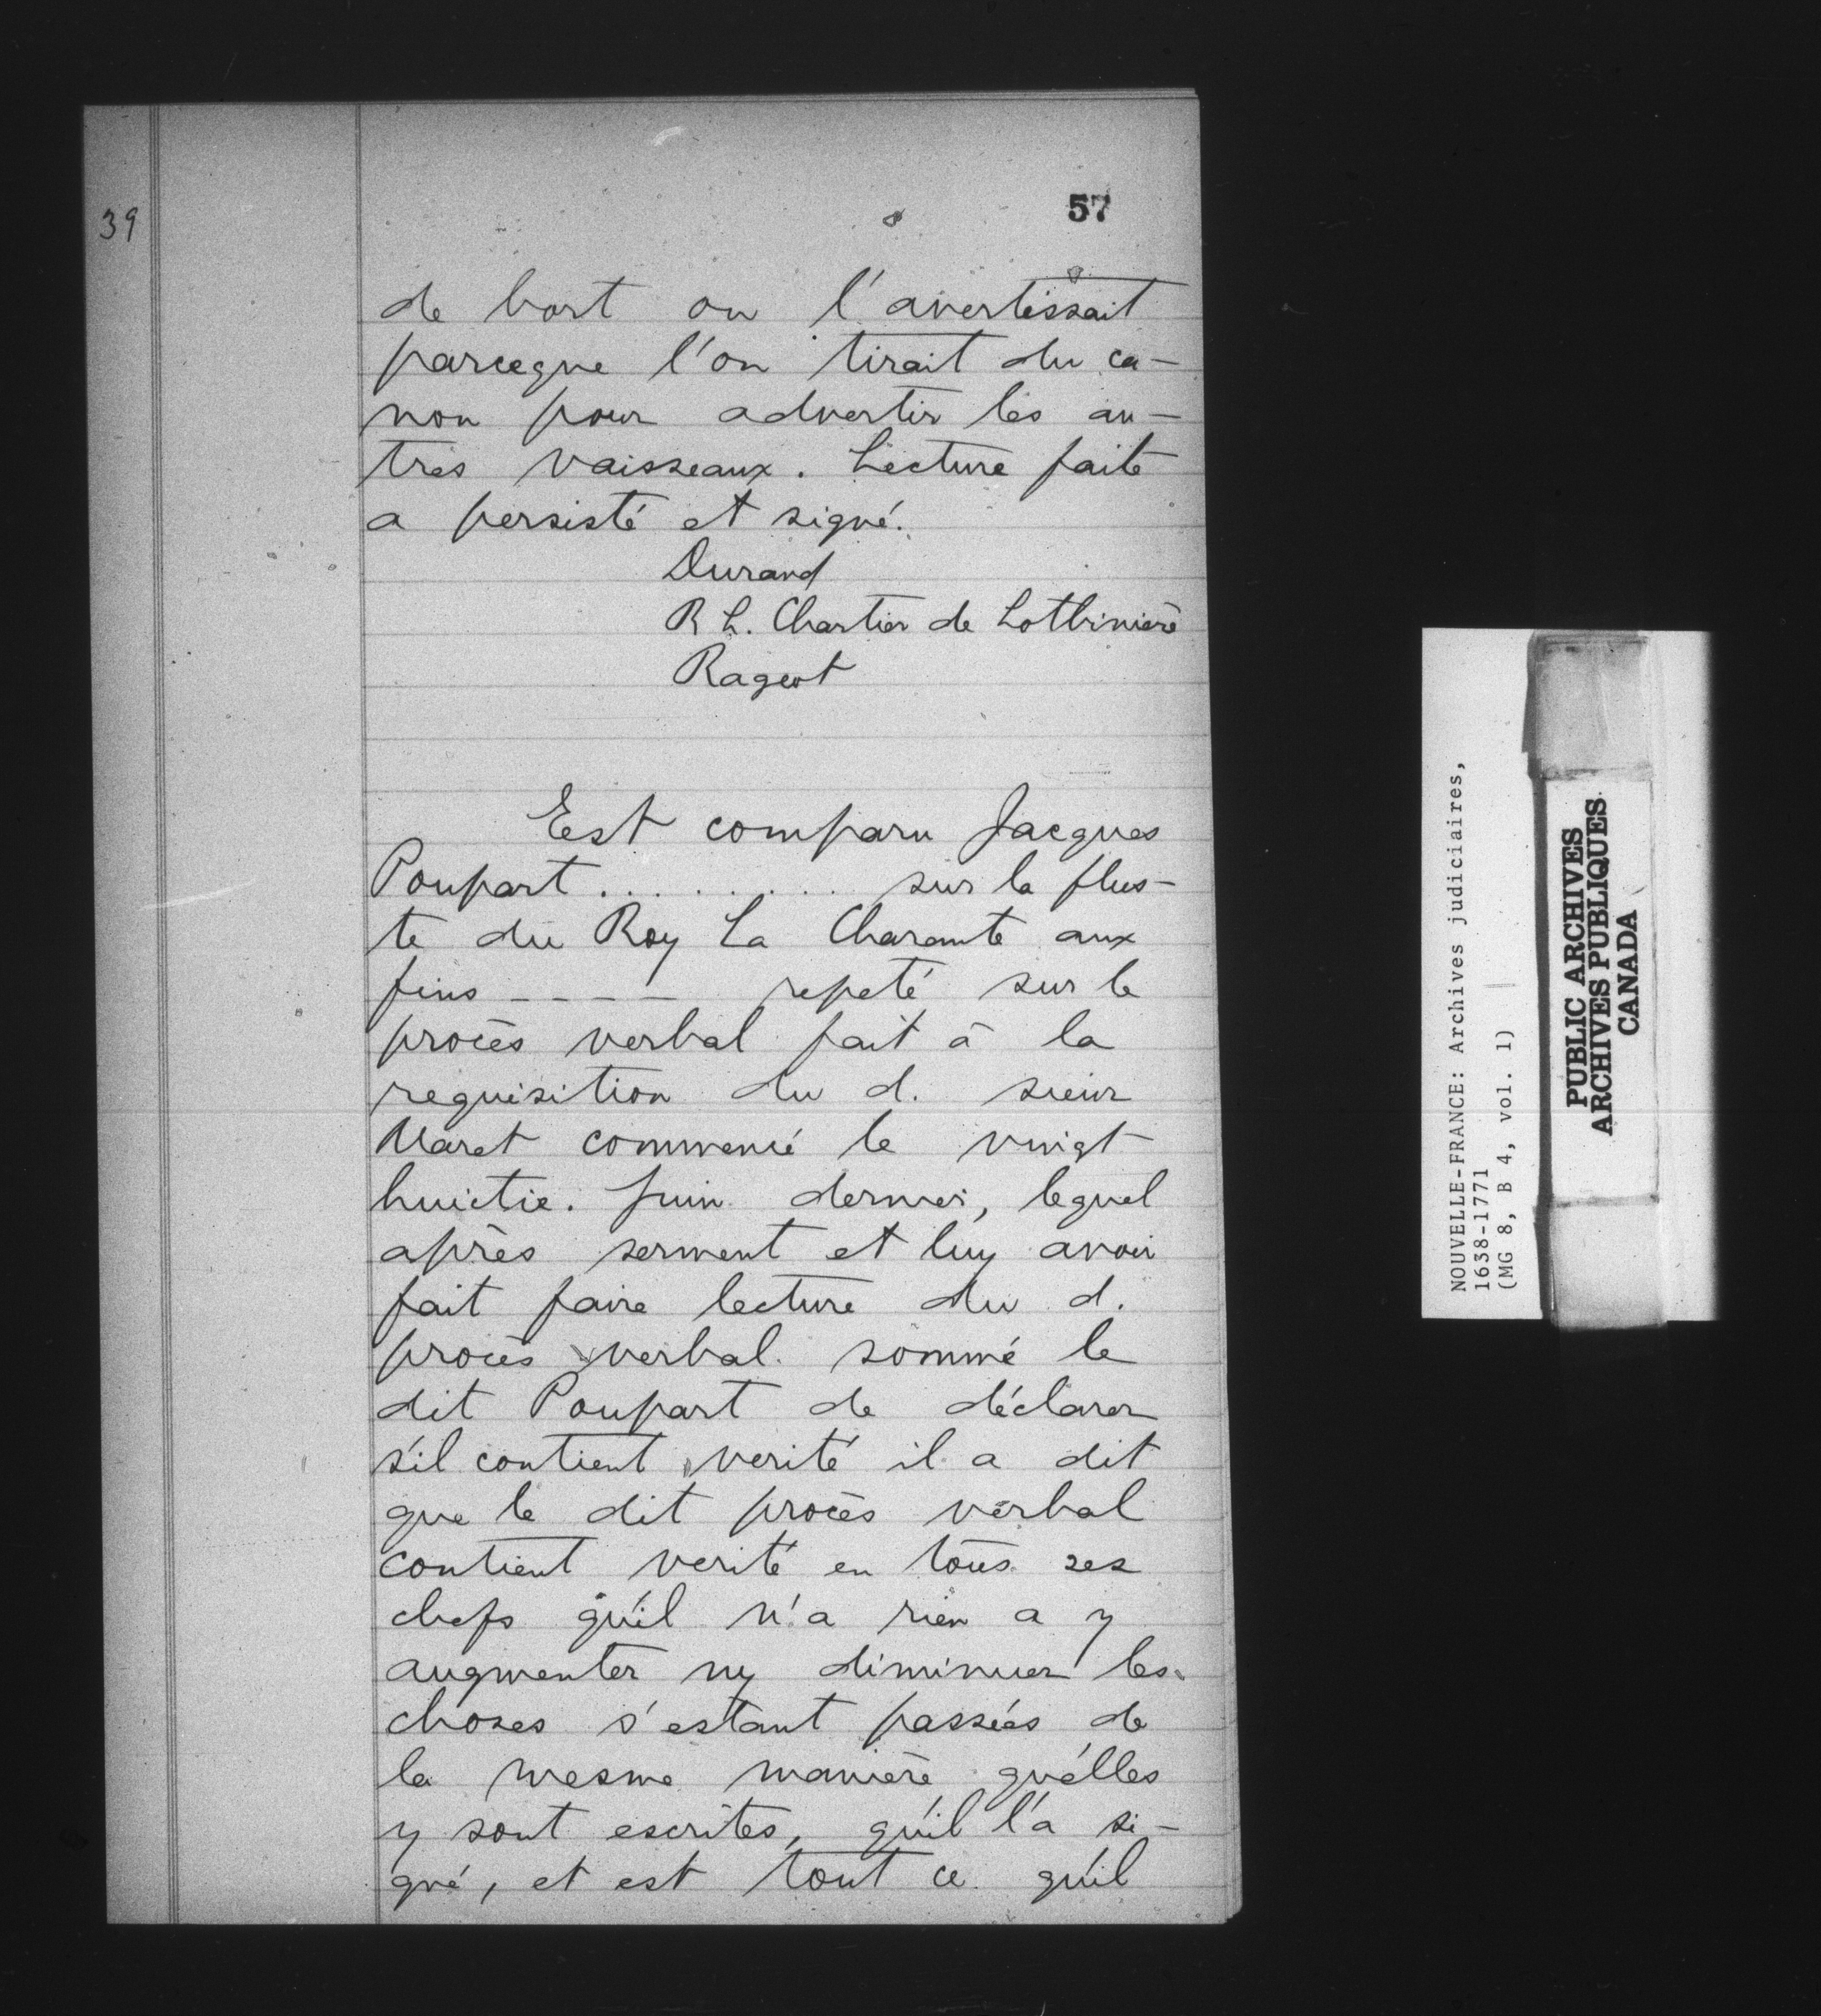 39
57
de bort on l'avertissait
parceque l'on tirait du ca-
non pour advertir les au-
tres vaisseaux. Lecture faite
a persisté et signé.
Durand
R L. Chartier de Lotbinière
Rageot
Est comparu Jacques
Poupart ......... sur la flus-
te du Roy La Charante aux
fins ---- repeté sur le
procès verbal fait à la
requisition du d. sieur
Maret commencé le vingt
huictie. Juin dernier, lequel
après serment et luy avoir
fait faire lecture du d.
procès verbal. sommé le
dit Poupart de déclarer
s'il contient verité il a dit
que le dit procès verbal
contient verité en tous ses
chefs qu'il n'a rien a y
augmenter ny diminuer les
choses s'estant passées de
la mesme manière qu'elles
y sont escrites, qu'il l'a si-
gné, et est tout ce qu'il
NOUVELLE-FRANCE: Archives judiciaires,
1638-1771
(MG 8, B 4, vol. 1)
PUBLIC ARCHIVES
ARCHIVES PUBLIQUES
CANADA